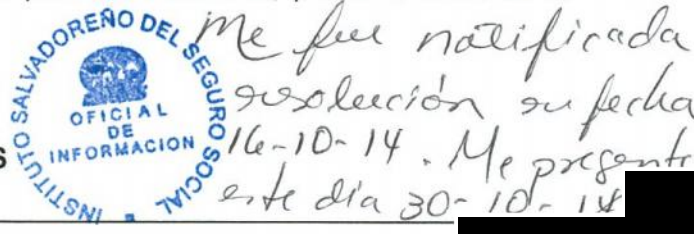 INSTITUTO SALVADOREÑO DEL SEGURO SOCIAL
OFICIAL
DE
INFORMACION
S
Me fue notificada
resolución en fecha
16-10-14. Me presento
este día 30-10-14